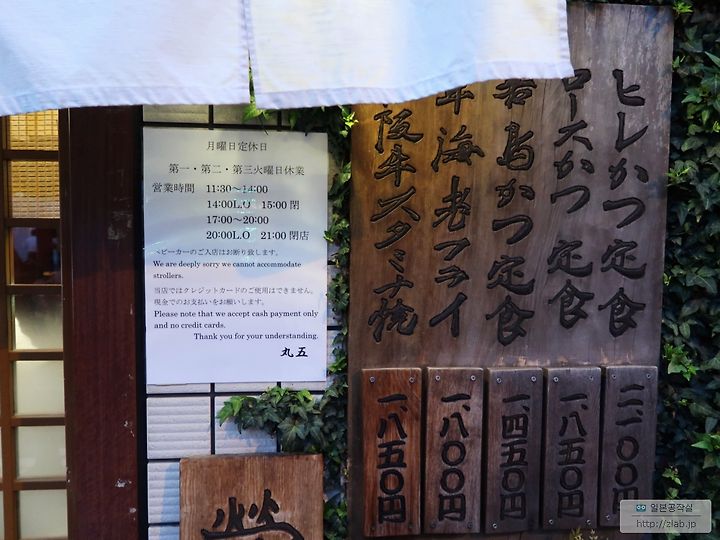 月曜日定休日
第一・第二・第三火曜日休業
営業時間 11:30～14:00
14:00L.O 15:00 閉
17:00～20:00
20:00L.O 21:00 閉店
ベビーカーのご入店はお断り致します。
We are deeply sorry we cannot accommodate
strollers.
当店ではクレジットカードのご使用はできません。
現金でのお支払いをお願いします。
Please note that we accept cash payment only
and no credit cards.
Thank you for your understanding.
丸五
ヒレかつ定食
二、一〇〇円
ロースかつ定食
一、八五〇円
若鳥かつ定食
一、四五〇円
海老フライ
一、八〇〇円
阪牛スタミナ焼
一、八五〇円
일본공작실
http://zlab.jp